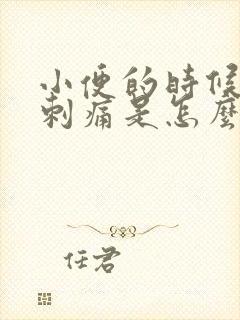 小便的時候
刺痛是怎麼
任君